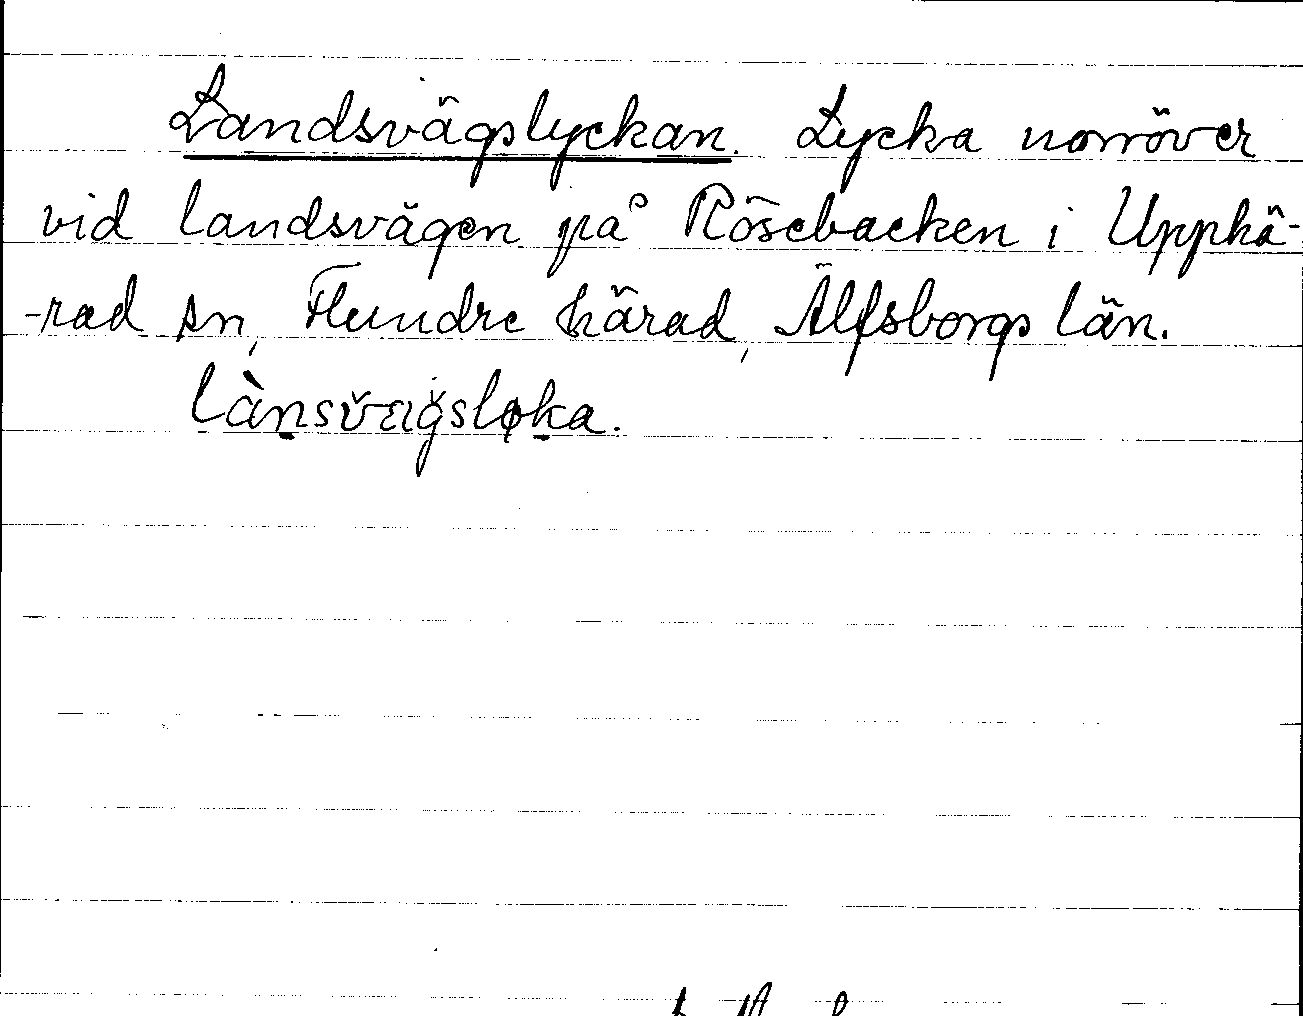 Landsvägslyckan. Lycka norröver
vid landsvägen på Rösebacken i Upphä-
-rad sn, Flundre härad, Älfsborgs län.